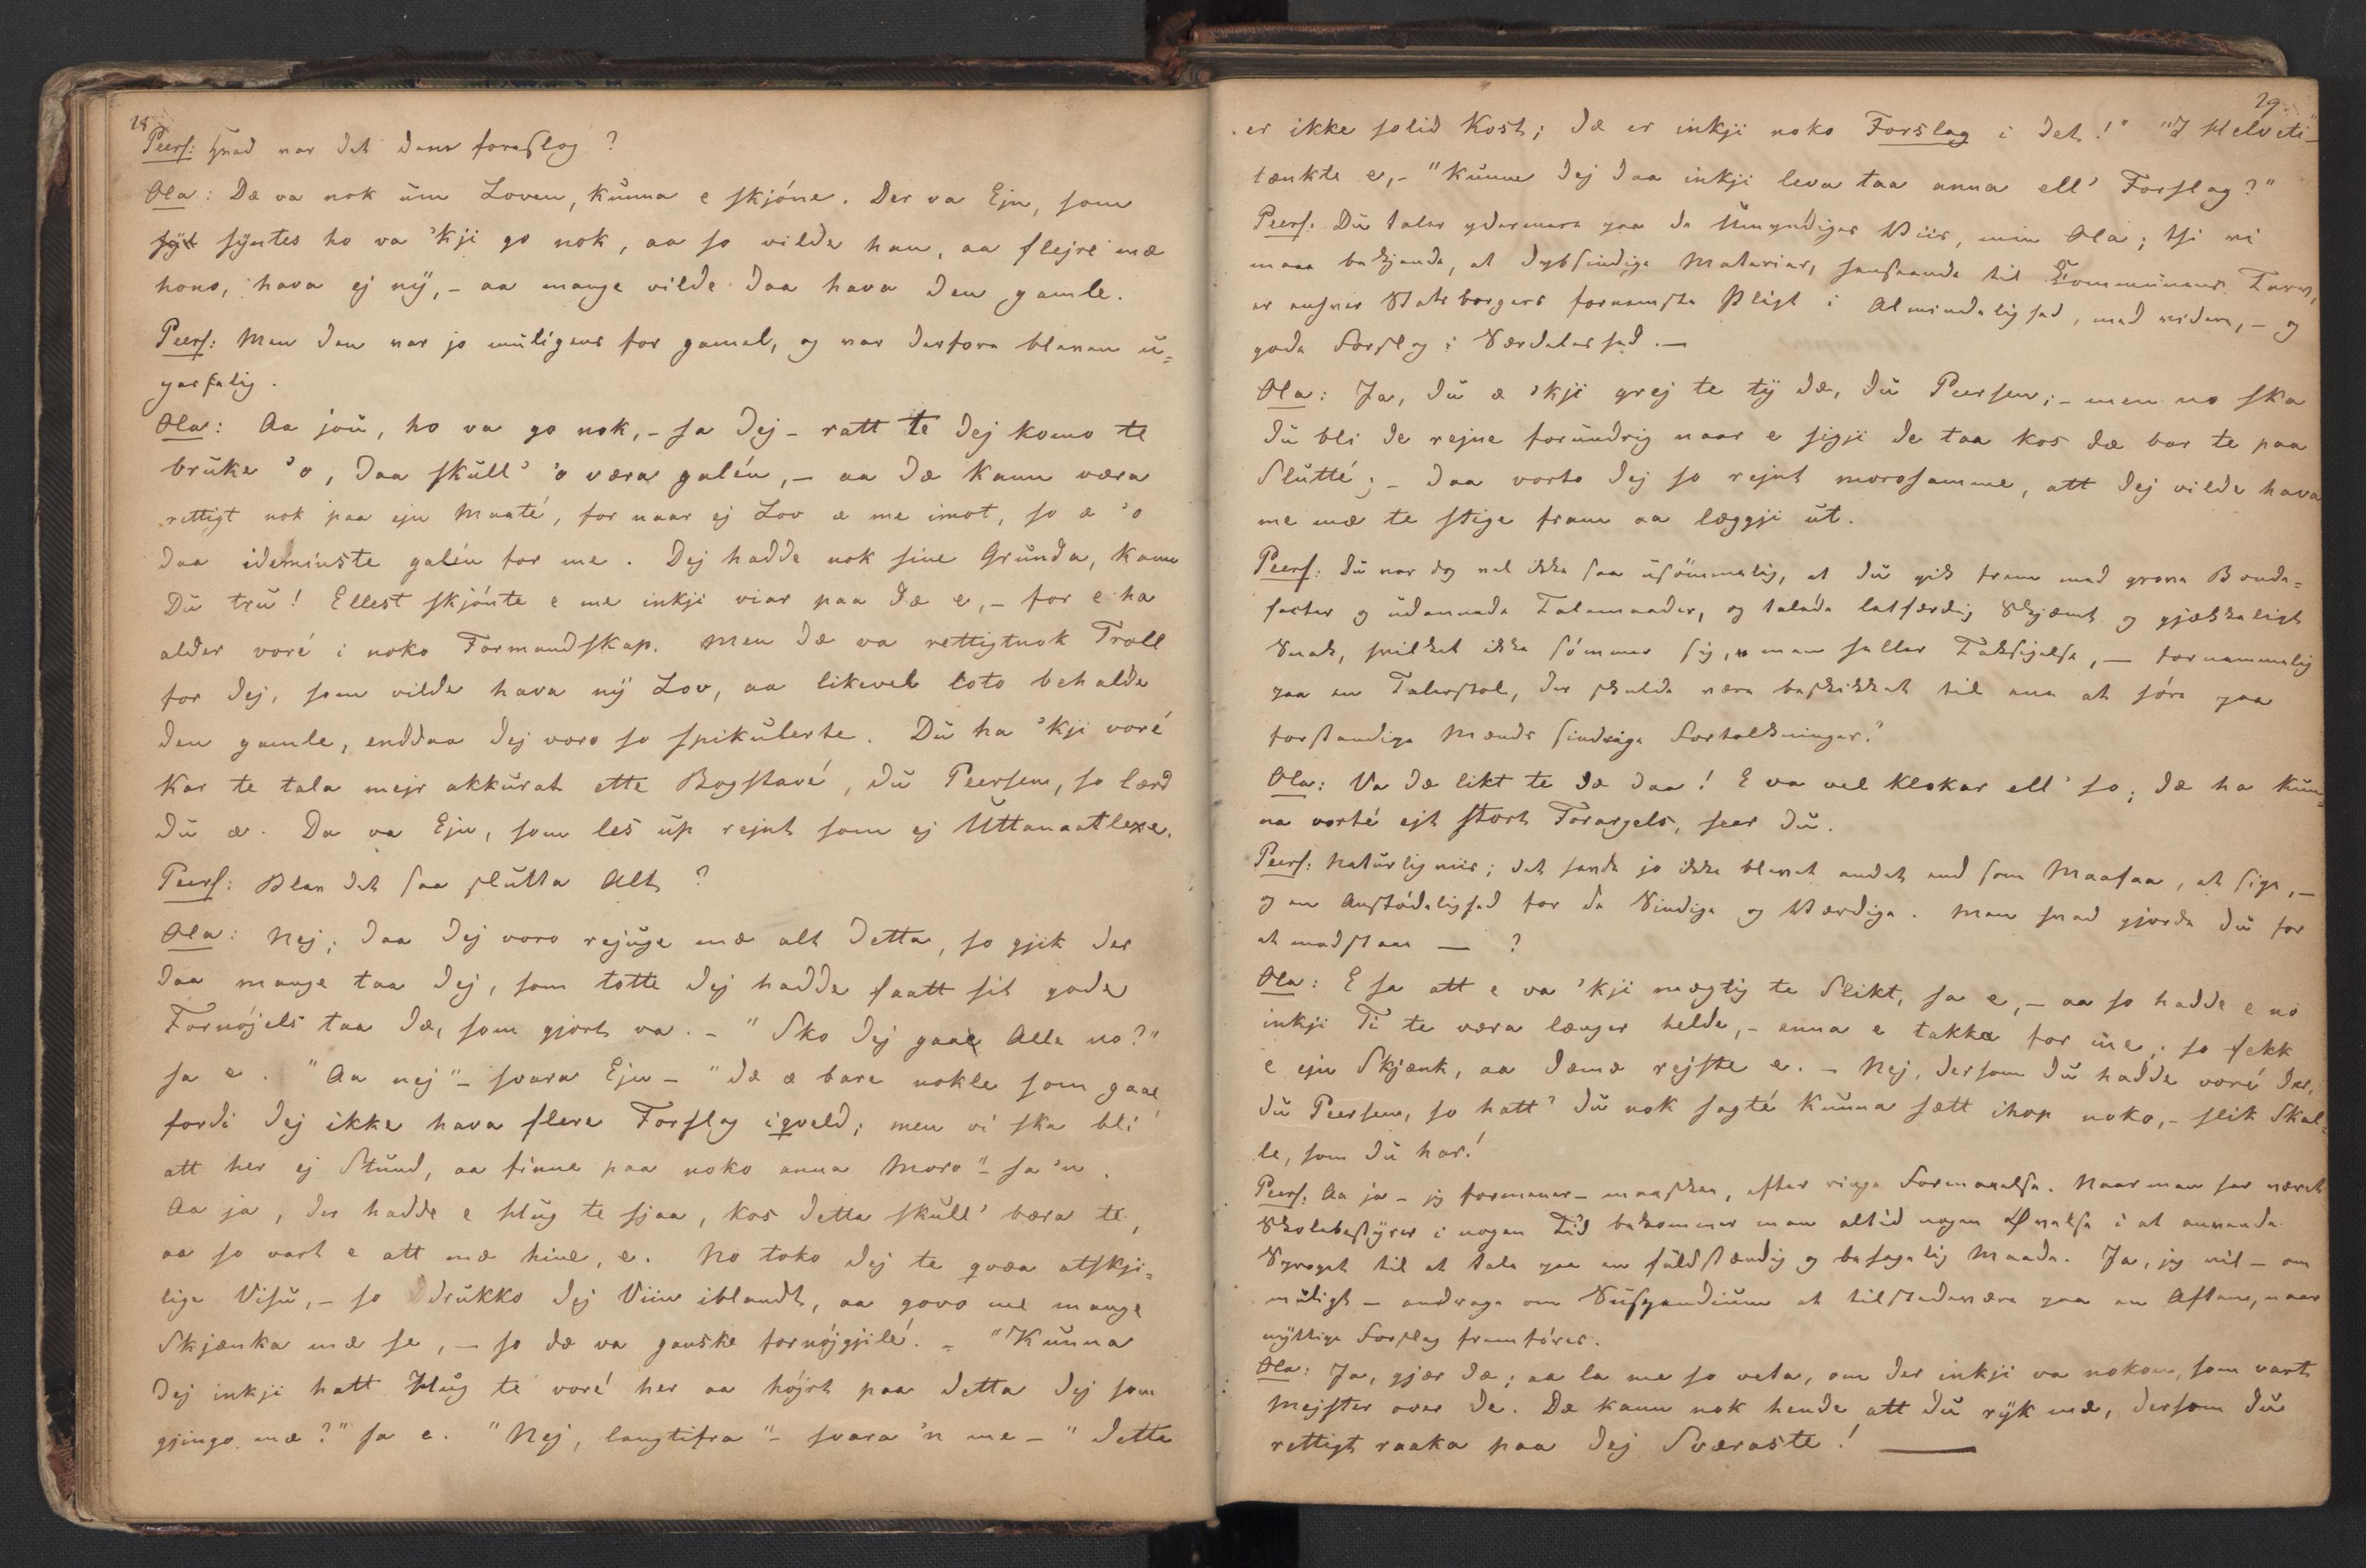 28
Peers: Hvad var det den foreslog?
Ola: Dæ va nok um Loven, kunna e skjóne. Der va Ejn, som
syntes ho va 'kji go nok, aa so vilde han, aa flejre mæ
hono, hava ej ny, - aa mange vilde daa hava den gamle.
Peers: Men den var jo muligens for gamal, og var derfore bleven u=
gerfælig.
Ola: Aa jóu, ho va go nok, - sa dej - ratt te dej komo te
bruke 'o, daa skull' 'o væra galén, - aa dæ kann væra
rettigt nok paa ejn Maaté, for naar ej Lov æ me imot, so æ 'o
daa ideminste galén for me. Dej hadde nok sine Grunda, kann
Du tru! Ellest skjónte e me inkji viar paa dæ e, - for e ha
alder voré i noko Formandskap. Men dæ va rettigtnok Troll
for dej, som vilde hava ny Lov, aa likevel loto behalde
den gamle, enddaa dej voro so spikulerte. Du ha 'kji voré
Kar te tala mejr akkurat ette Bogstavé, du Peersen, so lærd
du æ. Da va Ejn, som les up rejnt som ej Uttanaatlexe.
Peers: Blev det saa slutta Alt?
Ola: Nej; daa dej voro rejuge mæ alt detta, so gjik der
daa mange taa dej, som totte dej hadde faatt sit gode
Fornøjels taa dæ, som gjort va. - "Sko dej gaae Alle no?"
sa e. "Aa nej" - svara Ejn - "dæ æ bare nokle som gaae,
fordi dej ikke hava flere Forslag iqveld; men vi ska bli
att her ej Stund, aa finne paa noko anna Moro" - sa 'n.
Aa ja, der hadde e Hug te sjaa, kos detta skull' bæra te,
aa so vart e att mæ hine, e. No toko dej te qvæa atskji=
lige Visu, - so drukko dej Viin iblandt, aa govo me mange
Skjænka mæ se, - so dæ va ganske fornøjgjilé. - "Kunna
dej inkji hatt Hug te voré her aa højrt paa detta dej som
gjingo mæ?" sa e. "Nej, langtifra" - svara 'n me - "dette
29
er ikke solid Kost; dæ er inkji noko Forslag i det!" "I Helveti"-
tænkte e, - "kunne dej daa inkji leva taa anna ell' Forslag?"
Peers: Du taler ydermere paa de Umyndiges Viis, min Ola; thi vi
maae bekjende, at dybsindige Materier, henseende til Kommunens Tarv,
er enhver Statsborgers fornemste Pligt i Almindelighed, med videre, - og
gode Forslag i Særdeleshed. -
Ola: Ja, du æ 'kji grej te ty dæ, du Peersen; - men no ska
du bli de rejne forundrig naar e sigji de taa kos dæ bar te paa
Slutté; - daa vorto dej so rejnt morosamme, att dej vilde hava
me mæ te stige fram aa læggji ut.
Peers: Du var dog vel ikke saa usömmelig, at du gik frem med grove Bonde=
facter og udannede Talemaader, og talede letfærdig Skjæmt og gjækkeligt
Snak, hvilket ikke sömmer sig, men heller Taksigelse, - fornemmelig
paa en Talerstol, der skulde være beskikket til ene at höre paa
forstandige Mænds sindrige Fortolkninger?
Ola: Va dæ likt te dæ daa! E va vel klokar ell' so; dæ ha kun=
na vorté ejt stort Forargels, seer du.
Peers: Naturligviis; det havde jo ikke blevet andet end som Maafaa, at sige, -
og en Anstödelighed for de Sindige og Værdige. Men hvad gjorde du for
at modstaae - ?
Ola: E sa att e va 'kji mægtig te Slikt, sa e, - aa so hadde e no
inkji Ti te væra længer helde, - anna e takka for me; so fekk
e ejn Skjænk, aa dæmæ rejste e. - Nej, dersom du hadde voré der,
du Peersen, so hatt' du nok sagté kunna sætt ihop noko, - slik Skal=
le, som du har!
Peers: Aa ja - jeg formener - maaskee, efter ringe Formaaelse. Naar man har været
Skolebestyrer i nogen Tid bekommer man altid nogen Övelse i at anvende
Sproget til at tale paa en fuldstændig og behagelig Maade. Ja, jeg vil - om
muligt - andrage om at tilstedeværa paa en Aften, naar
nyttige Forslag fremföres.
Ola: Ja, gjær dæ; aa la me so veta, om der inkji va nokon, som vart
Mejster over de. Dæ kann nok hende att du ryk mæ, dersom du
rettigt raaka paa dej Sværaste! -